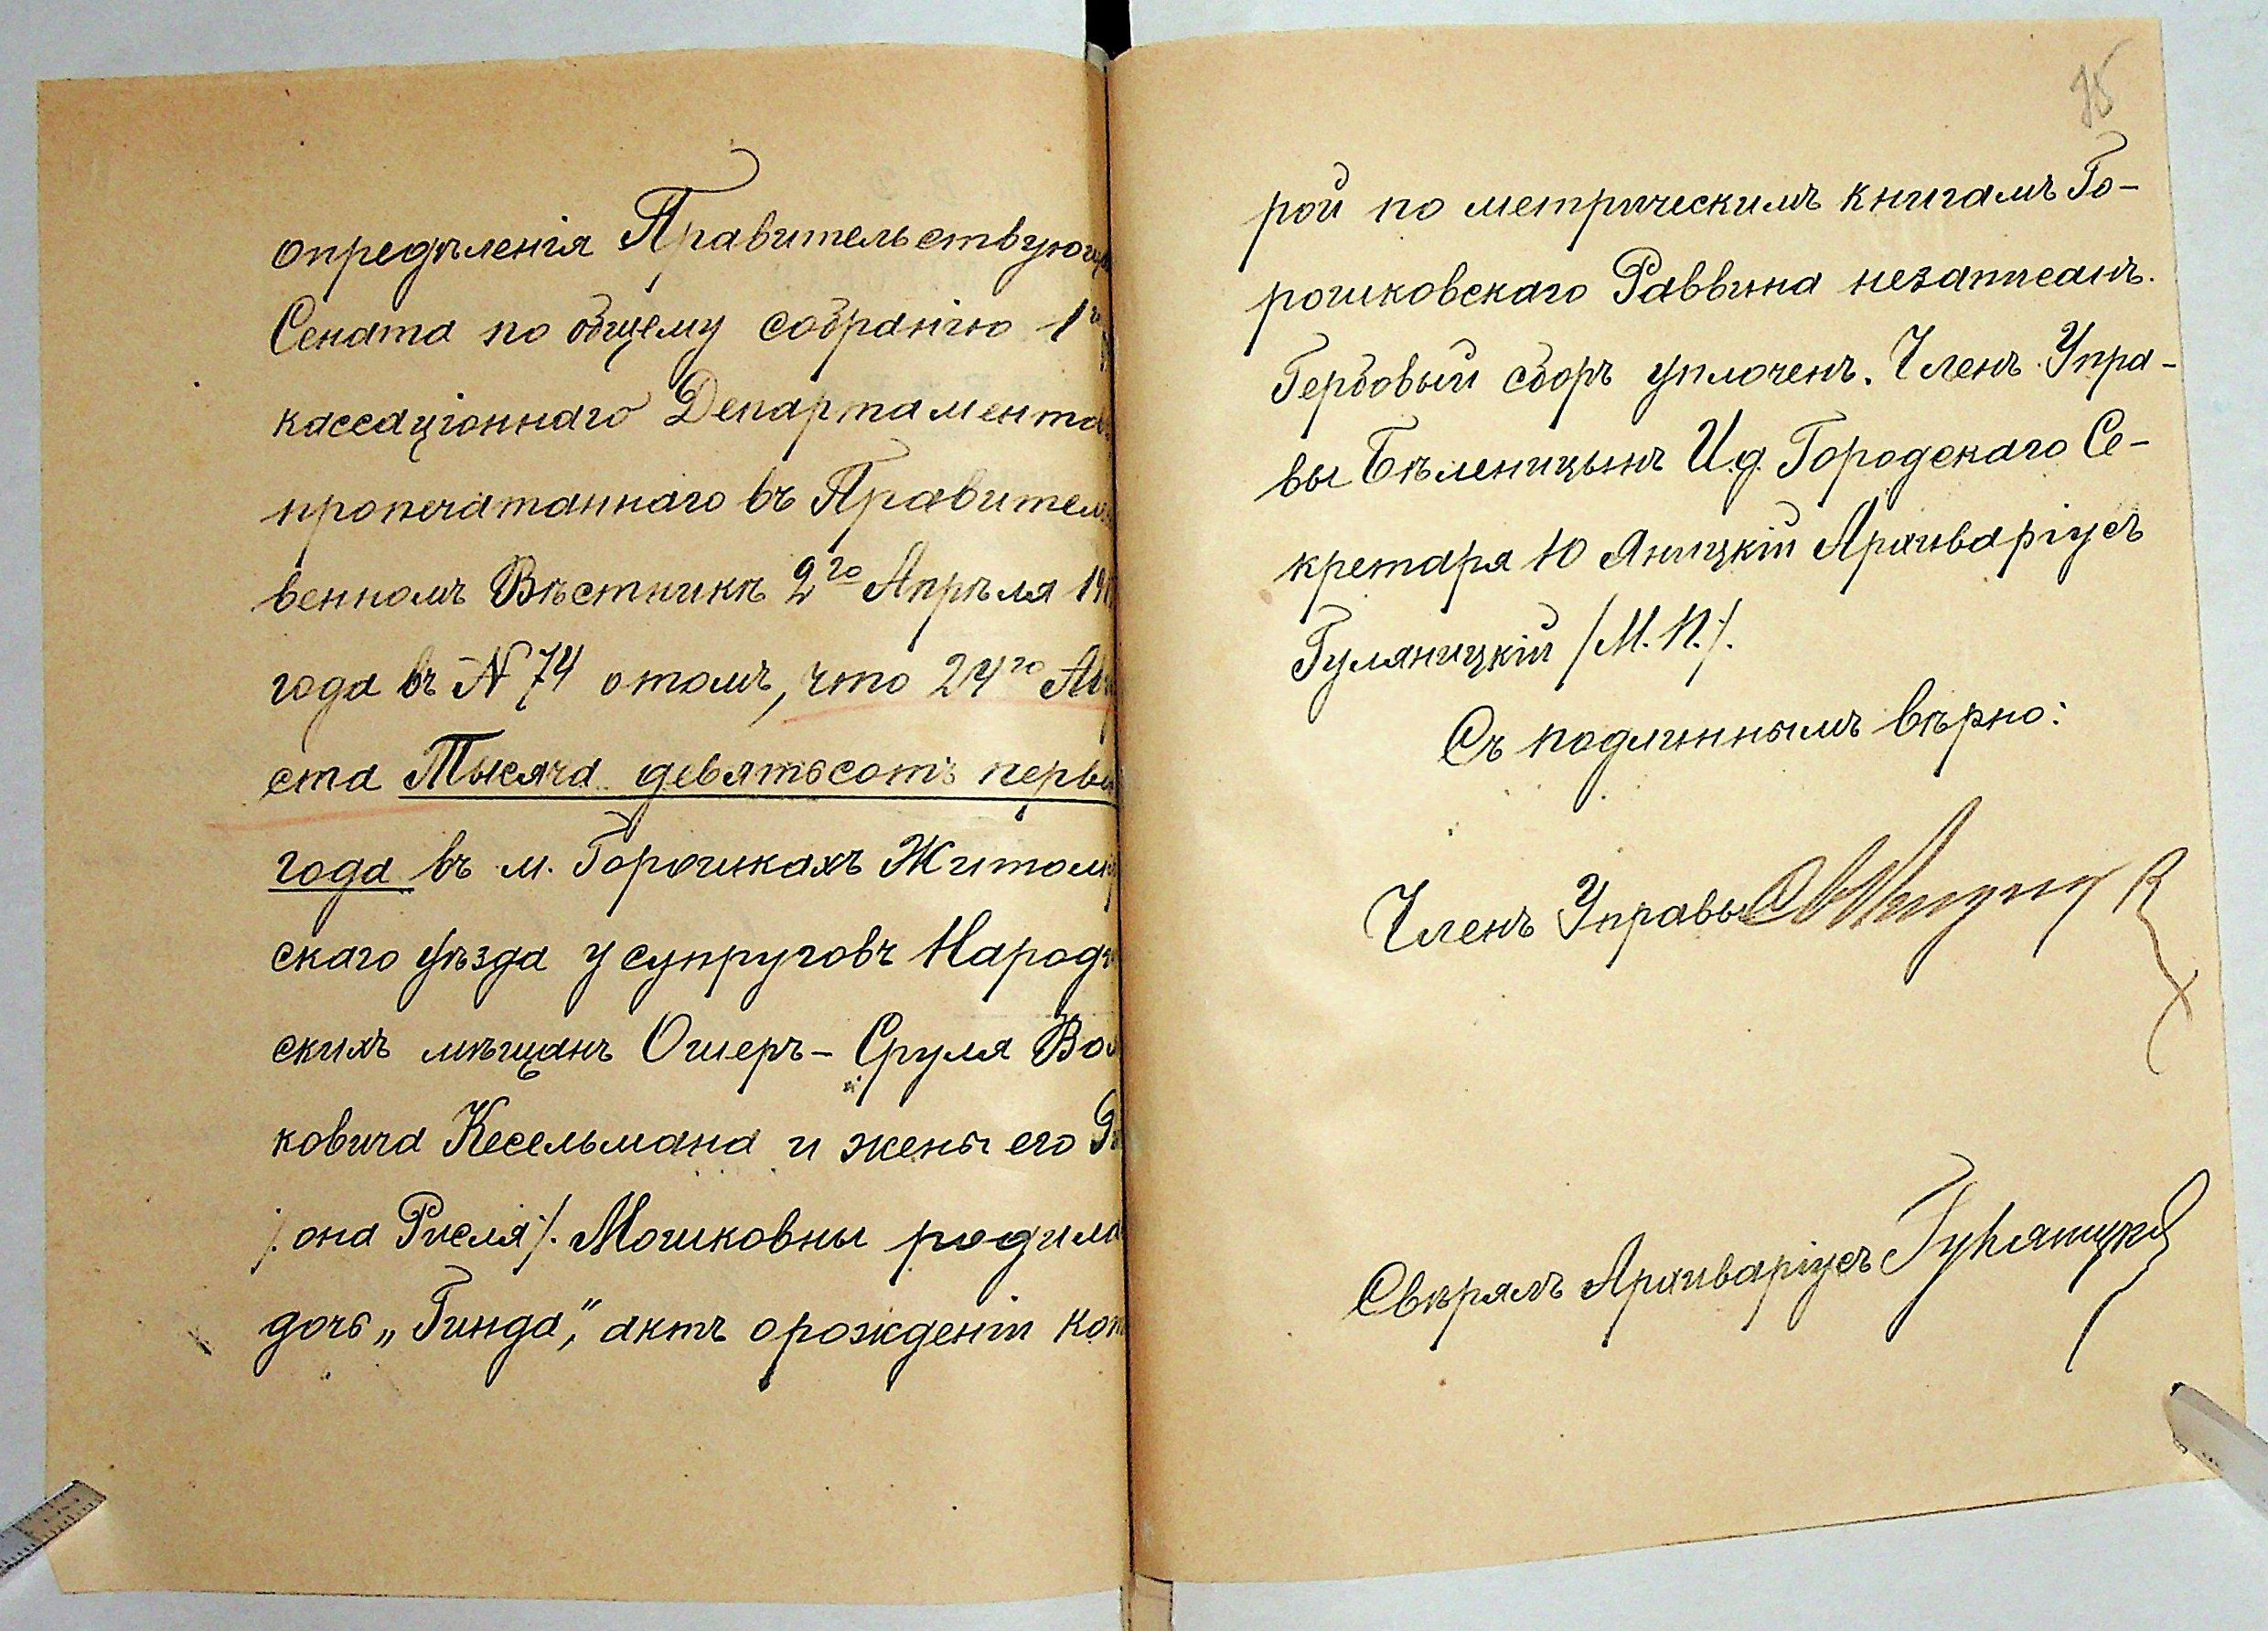 опредѣленія Правительствующ
Сената по общему собранію 1го
кассаціоннаго Департамента
пропечатаннаго въ Правитель
венномъ Вѣстникѣ 2го Апрѣля 19
года въ N 74 отомъ, что 24го Ав
ста Тысяча девятьсотъ первы
года въ м. Горошкахъ Житомир
скаго уѣзда у супруговъ Народи
скихъ мѣщанъ Ошеръ-Сруля Вол
ковича Кесельмана и жены его
/. она Рисля ./. Мошковны родила
дочь „Гинда", актъ орожденіи кот
75
рой по метрическимъ книгамъ Го-
рошковскаго Раввина незаписанъ.
Гербовый сборъ уплоченъ. Членъ Упра-
вы Бѣленицынъ И.д. Городскаго Се-
кретаря Ю Яницкій Архиваріусъ
Гуляницкій /М.П./.
Съ подлиннымъ вѣрно:
Членъ Управы
Свѣрялъ Архиваріусъ Гуляницкій